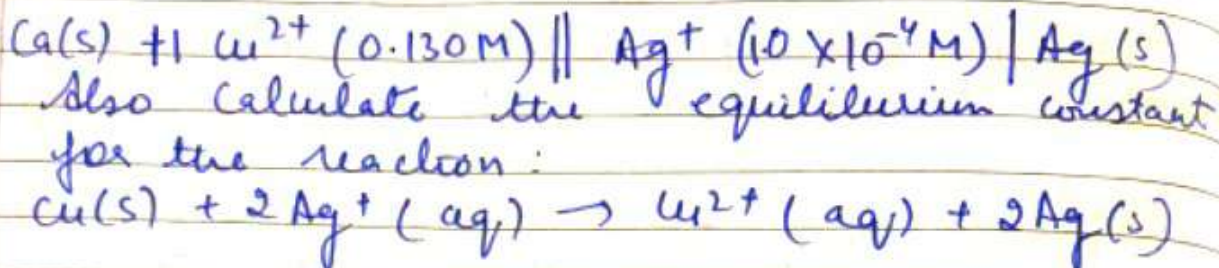 Ca(s) +1 Cu²⁺ (0.130M) || Ag⁺ (10 X10⁻⁴M) | Ag (s)
Also Calculate the equilibrium constant
for the reaction :
Cu(s) + 2 Ag⁺ ( aq) → Cu²⁺ ( aq) + 2Ag(s)